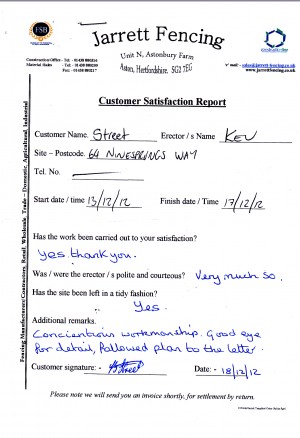 FSB
Jarrett Fencing
Unit N, Astonbury Farm
Aston, Hertfordshire. SG2 7EG
Construction Office - Tel:
Material Sales - Tel:
Fax -
e mail - sales@jarrett-fencing.co.uk
www.jarrettfencing.co.uk
Customer Satisfaction Report
Customer Name. Street Erector / s Name KEV
Site - Postcode. 64 NINESPRINGS WAY
Tel. No.
Start date / time 13/12/12 Finish date / Time 17/12/12
Has the work been carried out to your satisfaction?
Yes thank you.
Was / were the erector / s polite and courteous? Very much so.
Has the site been left in a tidy fashion?
Yes.
Additional remarks.
Concientious workmanship. Good eye
for detail, followed plan to the letter.
Customer signature: - Street Date: - 18/12/12
Please note we will send you an invoice shortly, for settlement by return.
Fencing Manufacturers/Contractors, Retail, Wholesale, Trade - Domestic, Agricultural, Industrial